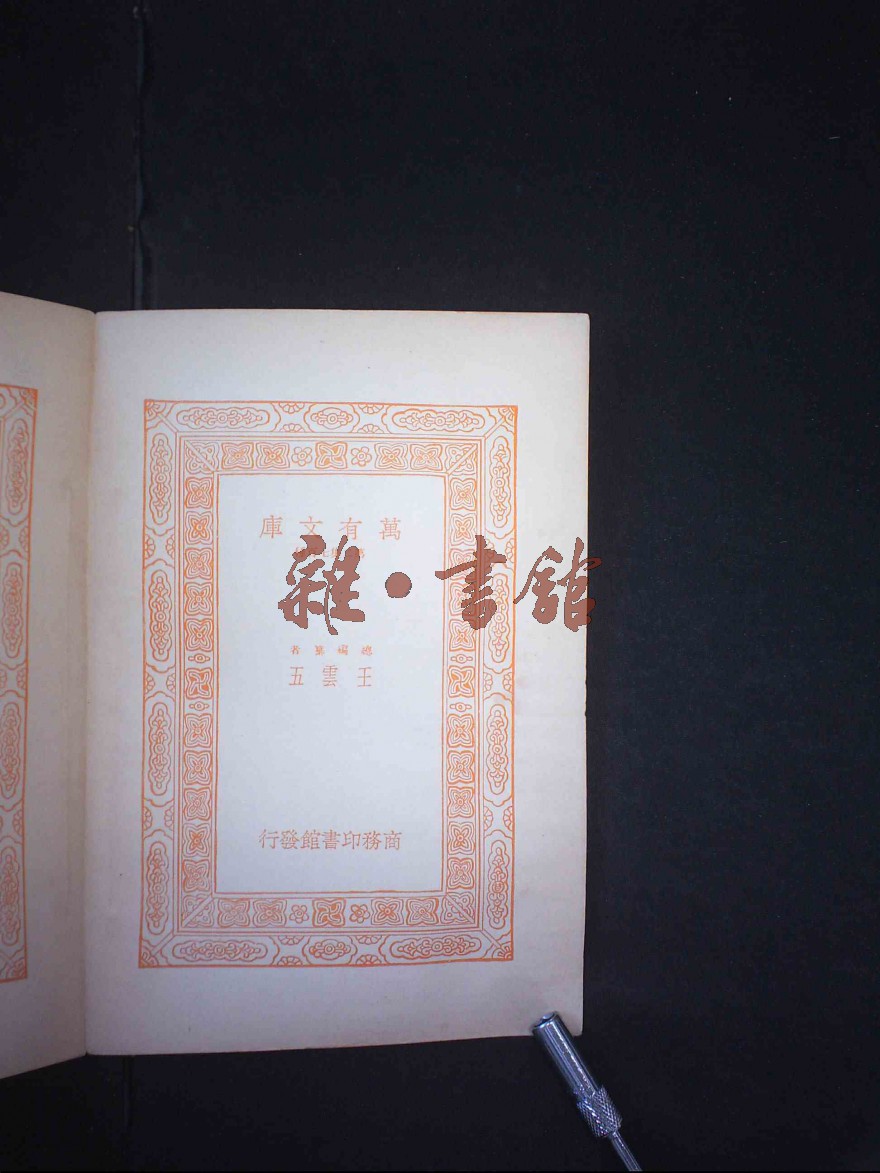 萬有文庫
雜·書館
總編纂者
王雲五
商務印書館發行